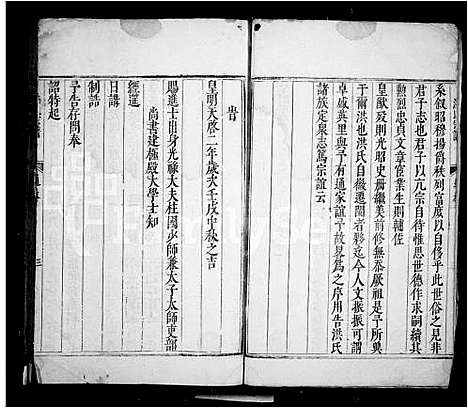 系叙昭穆揚簪秩列富厲以自侈乎此世俗之見非
君子志也君子以亢宗自待惟思世德作求嗣續其
勲烈忠貞文章宦業生則輔佐
皇猷殁則光昭史冊繼美前修無忝厥祖是予所與
于爾洪也洪氏自徽遷閩者夥迄今人文振振可謂
卓盛矣里與予有通家誼予故畧為之序用告洪氏
諸族定泉志篤宗誼云
旹
皇明天啓二年歲次壬戌中秋之吉
賜進士出身光祿大夫柱國少師兼太子太師吏部
尚書建極殿大學士知
經筵
日講
制誥
予告存問奉
詔特起
三